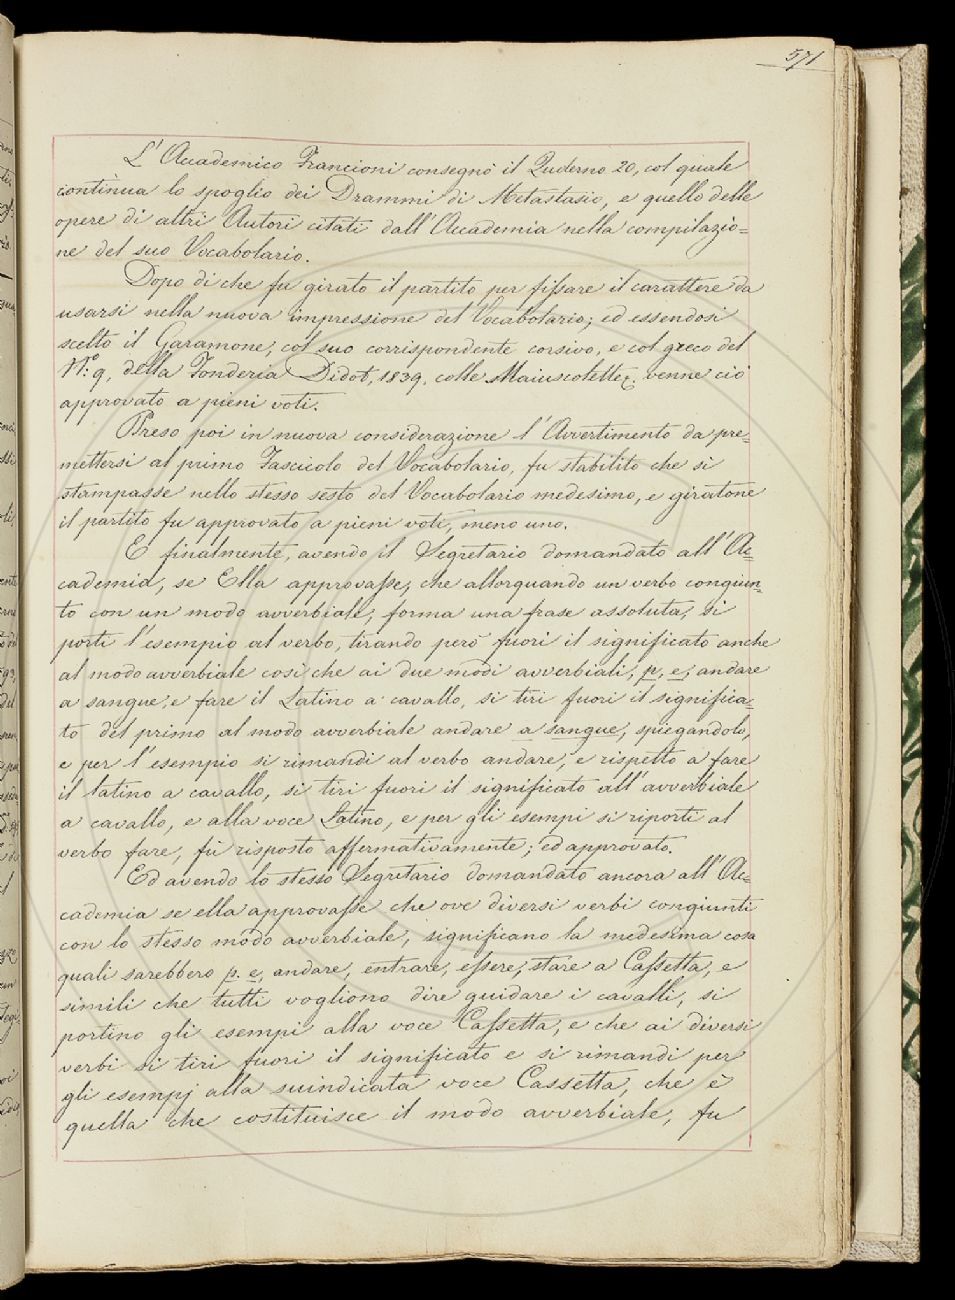 571
L' Accademico Francioni consegnò il Quderno 20, col quale
continua lo spoglio dei Drammi di Metastasio, e quello delle
opere di altri Autori citati dall' Accademia nella compilazio=
ne del suo Vocabolario.
Dopo di che fu girato il partito per fissare il carattere da
usarsi nella nuova impressione del Vocabolario; ed essendosi
scelto il Garamone, col suo corrispondente corsivo, e col greco del
N.º 9, della Fonderia Didot, 1839, colle Maiuscolette, venne ciò
approvato a pieni voti.
Preso poi in nuova considerazione l' Avvertimento da pre=
mettersi al primo Fascicolo del Vocabolario, fu stabilito che si
stampasse nello stesso sesto del Vocabolario medesimo, e giratone
il partito fu approvato a pieni voti, meno uno.
E finalmente, avendo il Segretario domandato all' Ac=
cademia, se Ella approvasse, che allorquando un verbo congiun=
to con un modo avverbiale, forma una frase assoluta, si
porti l'esempio al verbo, tirando però fuori il significato anche
al modo avverbiale così che ai due modi avverbiali, p. e. andare
a sangue, e fare il Latino a cavallo, si tiri fuori il significa=
to del primo al modo avverbiale andare a sangue, spiegandolo,
e per l'esempio si rimandi al verbo andare, e rispetto a fare
il latino a cavallo, si tiri fuori il significato all' avverbiale
a cavallo, e alla voce Latino, e per gli esempi si riporti al
verbo fare, fù risposto affermativamente; ed approvato.
Ed avendo lo stesso Segretario domandato ancora all' Ac=
cademia se ella approvasse che ove diversi verbi congiunti
con lo stesso modo avverbiale, significano la medesima cosa
quali sarebbero p. e. andare, entrare, essere, stare a Cassetta, e
simili che tutti vogliono dire guidare i cavalli, si
portino gli esempi alla voce Cassetta, e che ai diversi
verbi si tiri fuori il significato e si rimandi per
gli esempj alla suindicata voce Cassetta, che è
quella che costituisce il modo avverbiale, fu